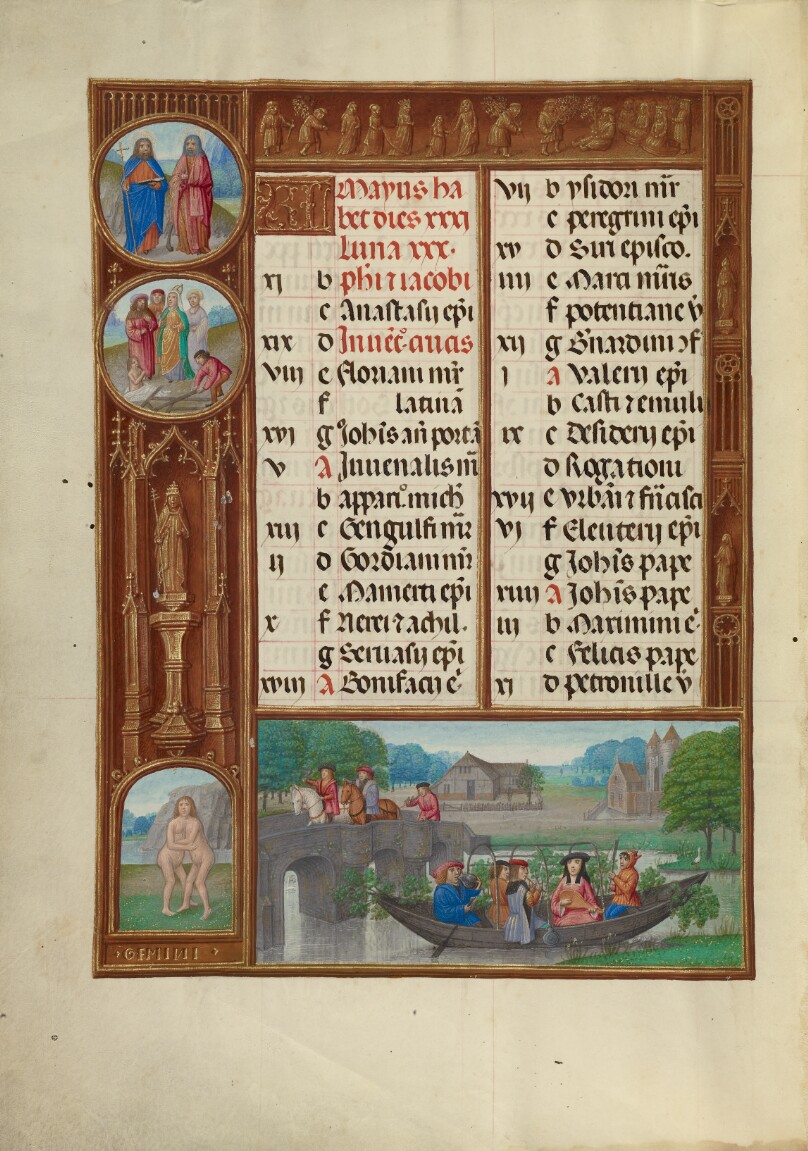 KL Mayus ha
bet dies xxxi
Luna xxx.
xi b phi ⁊ iacobi
c Anastasii epi
xix d Inuēc̄ crucis
viii e Floriani mr̄
f latinā
xvi g Ioh̄is an̄ portā
v A Iuuenalis m̄
b appari᷒ mich̄
xiii c Gengulfi mr̄
ii d Gordiani mr̄
e Mamerti epi
x f Nerei ⁊ achil.
g Seruasii epi
xviii A Bonifacii ē
vii b ysidori mr̄
c peregrini ep̄i
xv d Siri episco.
iiii e Marci mr̄is
f potentiane v̄
xii g B̄nardini ↄf
i A Valerii ep̄i
b Casti ⁊ emili
ix c Desiderii ep̄i
d Rogationi
xvii e vrbāi ⁊ fr̄cisci
vi f Eleuterii ep̄i
g Ioh̄is pape
xiiii A Ioh̄is pape
iii b Maximini ē
c Felicis pape
xi d petronille v̄
GEMINI